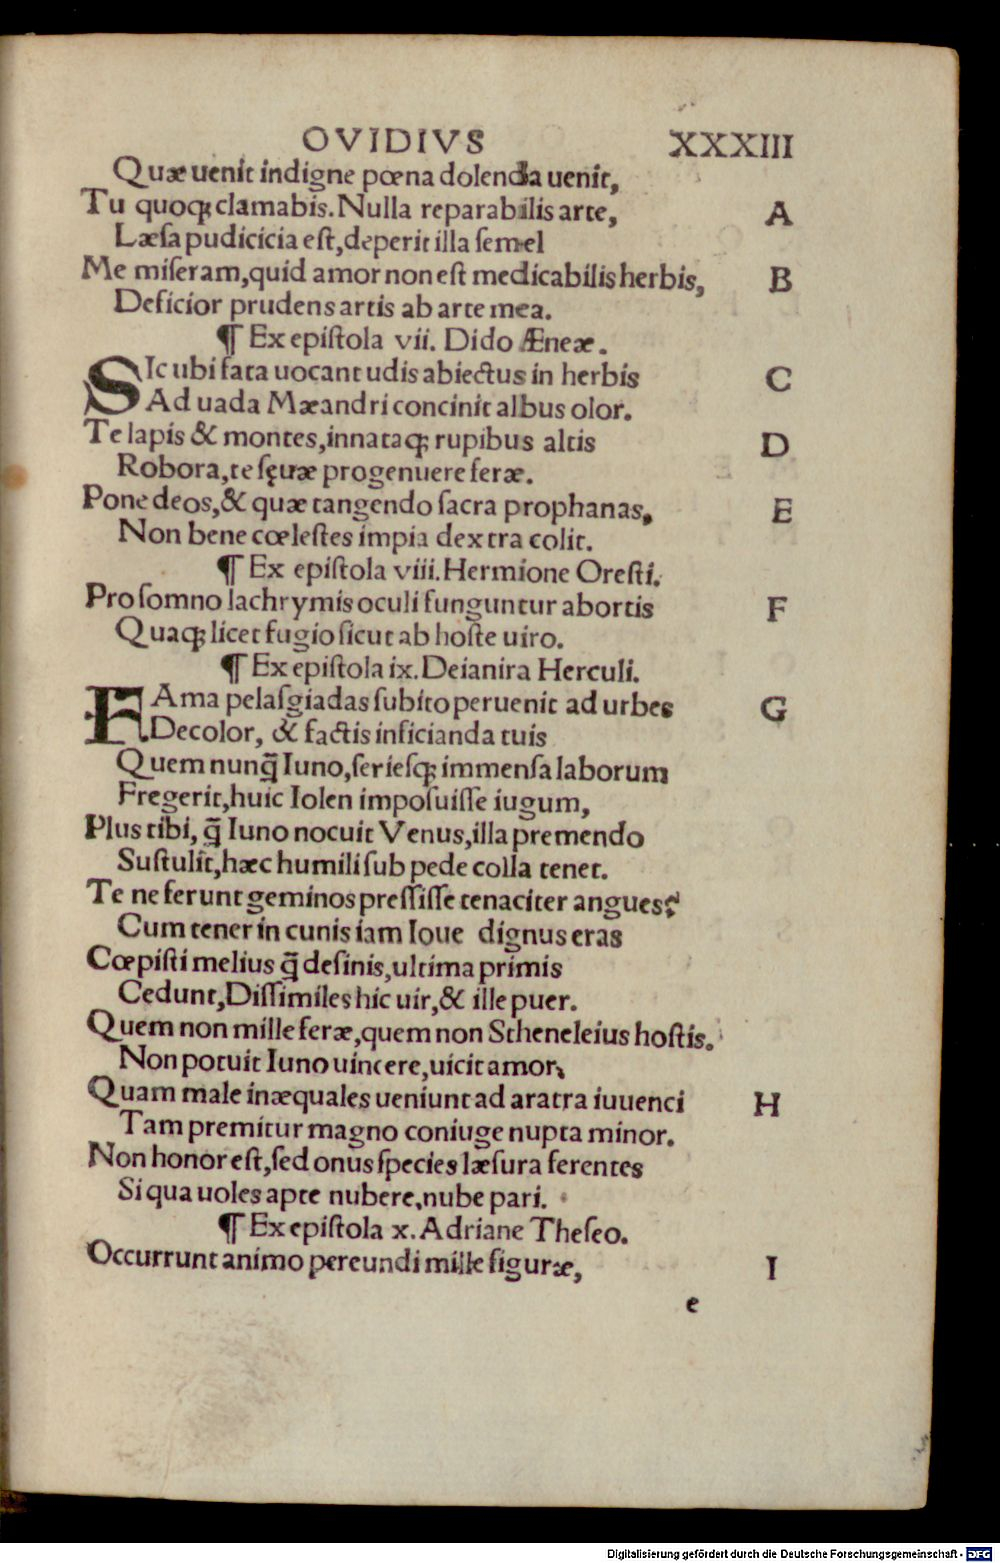 OVIDIVS XXXIII
Quæ uenit indigne pœna dolenda uenit,
Tu quoqꝫ clamabis. Nulla reparabilis arte, A
Læſa pudicicia eſt, deperit illa ſemel
Me miſeram, quid amor non eſt medicabilis herbis, B
Deficior prudens artis ab arte mea.
¶ Ex epiſtola vii. Dido Æneæ.
SIc ubi fata uocant udis abiectus in herbis C
Ad uada Mæandri concinit albus olor.
Te lapis & montes, innataqꝫ rupibus altis D
Robora, te ſęuæ progenuere feræ.
Pone deos, & quæ tangendo ſacra prophanas, E
Non bene cœleſtes impia dextra colit.
¶ Ex epiſtola viii. Hermione Oreſti.
Pro ſomno lachrymis oculi funguntur abortis F
Quaqꝫ licet fugio ſicut ab hoſte uiro.
¶ Ex epiſtola ix. Deianira Herculi.
FAma pelaſgiadas ſubito peruenit ad urbes G
Decolor, & factis inficianda tuis
Quem nunq̃ Iuno, ſerieſqꝫ immenſa laborum
Fregerit, huic Iolen impoſuiſſe iugum,
Plus tibi, q̃ Iuno nocuit Venus, illa premendo
Suſtulit, hæc humili ſub pede colla tenet.
Te ne ferunt geminos preſſiſſe tenaciter angues?
Cum tener in cunis iam Ioue dignus eras
Cœpiſti melius q̃ deſinis, ultima primis
Cedunt, Diſſimiles hic uir, & ille puer.
Quem non mille feræ, quem non Stheneleius hoſtis.
Non potuit Iuno uincere, uicit amor,
Quam male inæquales ueniunt ad aratra iuuenci H
Tam premitur magno coniuge nupta minor.
Non honor eſt, ſed onus ſpecies læſura ferentes
Si qua uoles apte nubere, nube pari.
¶ Ex epiſtola x. Adriane Theſeo.
Occurrunt animo pereundi mille figuræ, I
e
Digitalisierung gefördert durch die Deutsche Forschungsgemeinschaft - DFG